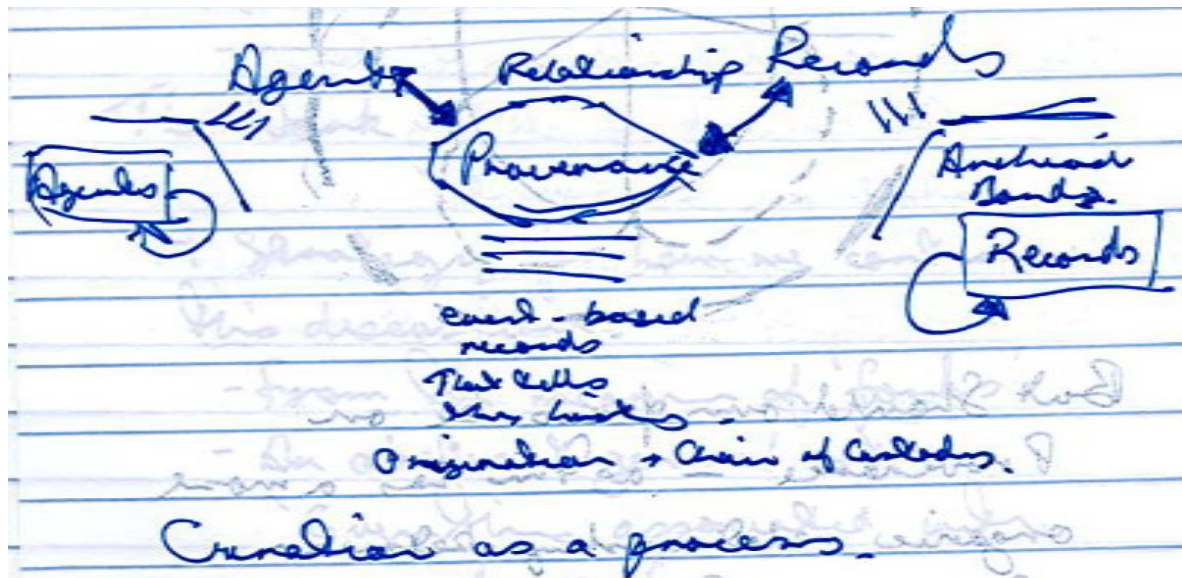 Agents Relationship Records
Provenance
Agents
Archival
Bonds.
Records
event-based
records
that tells
the history.
Origination + Chain of Custody.
Curation as a process.